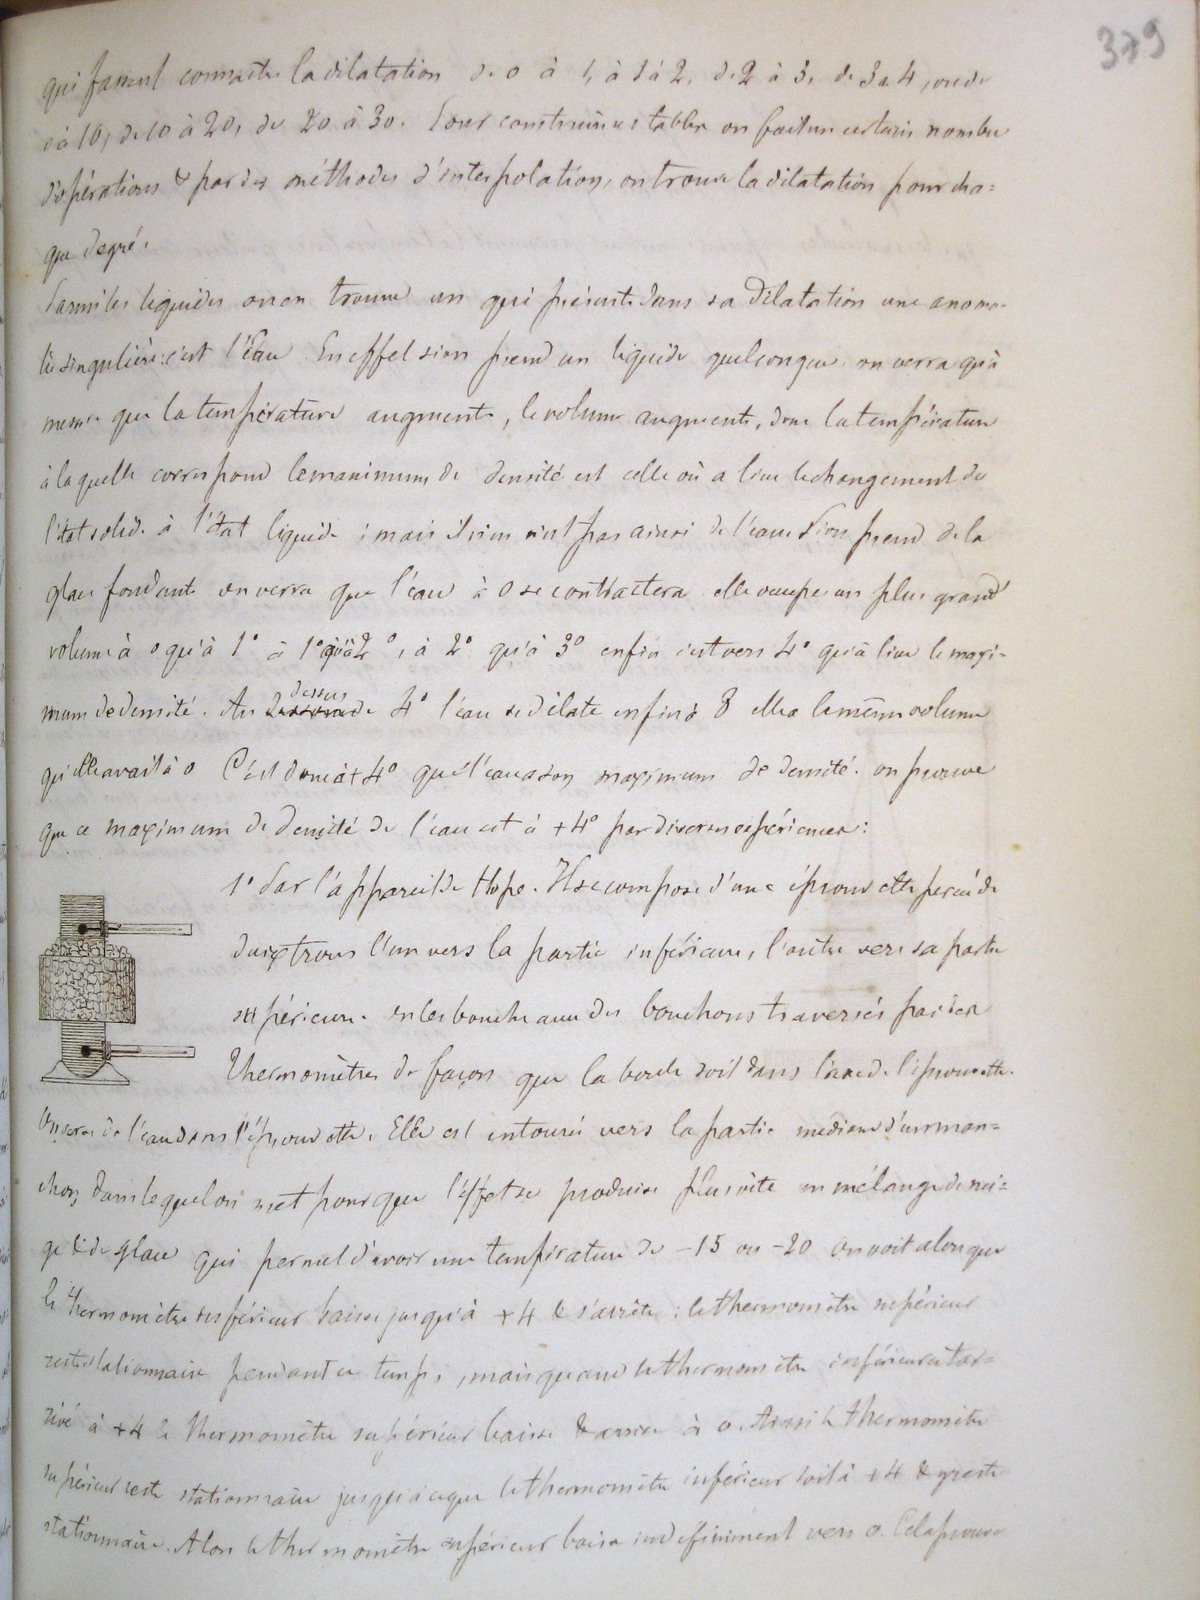 379
qui fassent connaître la dilatation de 0 à 1, à 1 à 2, de 2 à 3, de 3 à 4, ou de
0 à 10, de 10 à 20, de 20 à 30. Pour construire ces tables on fait un certain nombre
d'opérations & par des méthodes d'interpolation, on trouve la dilatation pour cha=
que degré.
Parmi les liquides on en trouve un qui présente dans sa dilatation une anoma-
lie singulière: c'est l'Eau En effet si on prend un liquide quelconque, on verra qu'à
mesure que la température augmente, le volume augmente, donc la température
à laquelle correspond le maximum de densité est celle où a lieu le changement de
l'état solide à l'état liquide ; mais il n'en est pas ainsi de l'eau Si on prend de la
glace fondante on verra que l'eau à 0 se contractera elle occupe un plus grand
volume à 0 qu'à 1° à 1° qu'à 2°, à 2° qu'à 3° enfin c'est vers 4° qu'a lieu le maxi=
mum de densité. Au dessus de 4° l'eau se dilate enfin à 8 elle a le même volume
qu'elle avait à 0 C'est donc à +4° que l'eau a son maximum de densité. on prouve
que ce maximum de densité de l'eau est à +4° par diverses expériences:
1° Par l'appareil de Hope. Il se compose d'une éprouvette percée de
deux trous l'un vers la partie inférieure, l'autre vers sa partie
supérieure. on les bouche avec des bouchons traversés par des
thermomètres de façon que la boule soit dans l'axe de l'éprouvette.
On verse de l'eau dans l'éprouvette. Elle est entourée vers la partie médiane d'un man=
chon dans lequel on met pour que l'effet se produise plus vite un mélange de nei=
ge & de glace qui permet d'avoir une température de -15 ou -20 on voit alors que
le thermomètre inférieur baisse jusqu'à +4 & s'arrête : le thermomètre supérieur
reste stationnaire pendant ce temps, mais quand le thermomètre inférieur est ar=
rivé à +4 le thermomètre supérieur baisse & arrive à 0. Ainsi le thermomètre
supérieur reste stationnaire jusqu'à ce que le thermomètre inférieur soit à +4 & y reste
stationnaire. Alors le thermomètre supérieur baisse indéfiniment vers 0. Cela prouve